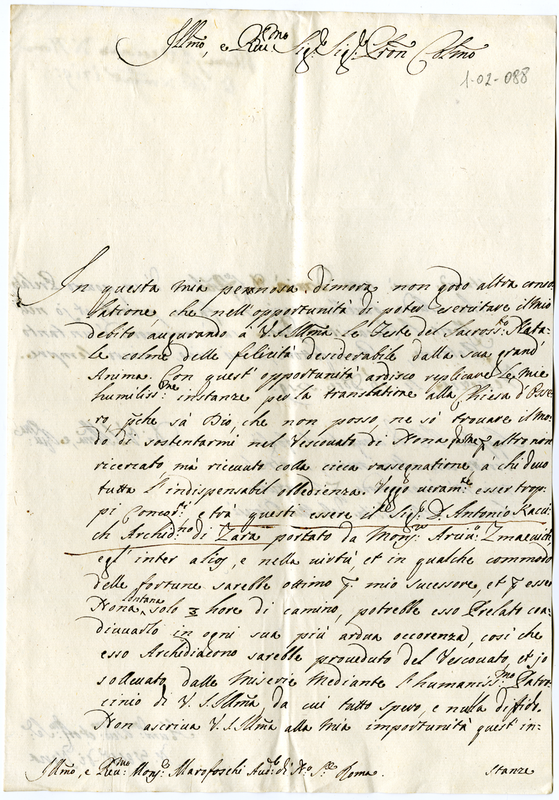 Illmo, e Revmo Sigr Sigr Pron Colmo
1-02-088
In questa mia penosa dimora non godo altra conso
latione che nell'opportunità di poter esercitare il mio
debito augurando à V.S. Illma le feste del Sacross:to Nata-
le colme delle felicità desiderabile dalla sua grand'
Anima. Con quest'opportunità ardisco replicare le mie
humiliss:me instanze per la translatione alla Chiesa d'Osse
ro, pche sà Dio, che non posso, ne sò trouare il mo-
do di sostentarmi nel Vescouato di Nona da me altro non
ricercato, mà riceuuto colla cieca rassegnatione à chi deuo
tutta l'indispensabil obbedienza. Veggo veram:te esser trop-
pi Concor:ti e trà questi essere il Sigr D. Antonio Kacui-
ch Archid:no di Zara portato da Monsr Arciuo Zmaeuich,
egl'inter alios, e nella virtù, et in qualche commodo
delle fortune sarebbe ottimo p mio sucessore, et p esser
Nona lontana solo 3 hore di camino, potrebbe esso Prelato coa-
diuuarlo in ogni sua più ardua occorenza, così che
esso Archidiacono sarebbe proueduto del Vescouato, et jo
solleuato dalle miserie mediante l'humaniss:mo Patro-
cinio di V.S. Illma, da cui tutto spero, e nulla diffido.
Non ascriua V.S. Illma alla mia importunità quest'in-
Illmo, e Reumo Monsr Marofoschi Audre di No Sre Roma. stanze